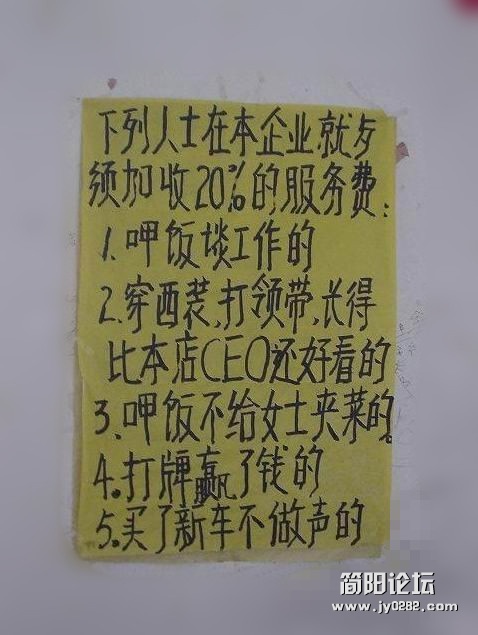 下列人士在本企业就歺
须加收20%的服务费:
1.呷饭埮工作的
2.穿西装,打领带,长得
比本店CEO还好看的
3、呷饭不给女士夹菜的。
4.打牌赢了钱的
5.买了新车不做声的
简阳论坛
www.jy0282.com